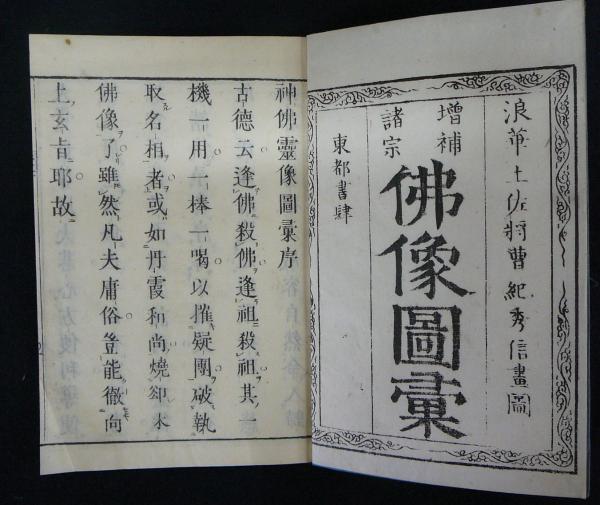 浪華土佐將曹紀秀信畫圖
增補
諸宗
佛像圖彙
東都書肆
神佛靈像圖彙序
古德云逢佛殺佛逢祖殺祖其一
機一用一棒一喝以摧疑團破執
取名相者或如丹霞和尚燒卻木
佛像了雖然凡夫庸俗豈能徹向
上玄旨耶故